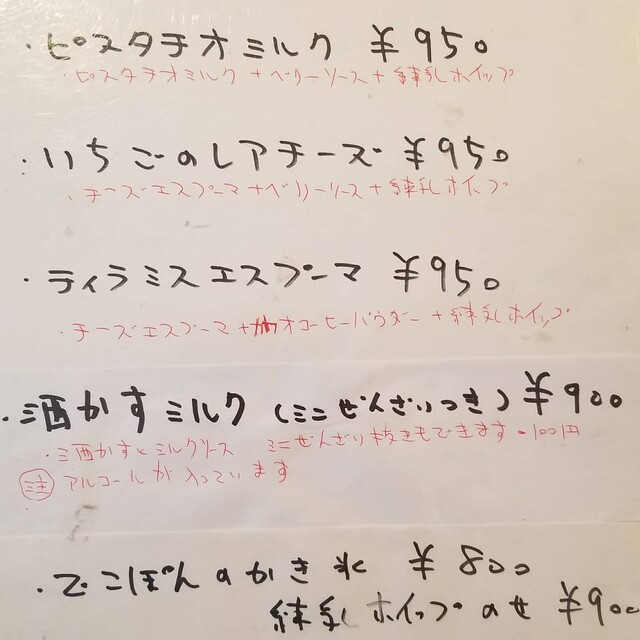 ・ピスタチオミルク ¥950
・ピスタチオミルク+ベリーソース+練乳ホイップ
・いちごのレアチーズ ¥950
・チーズエスプーマ+ベリーソース+練乳ホイップ
・ティラミスエスプーマ ¥950
・チーズエスプーマ+カカオコーヒーパウダー+練乳ホイップ
・酒かすミルク(ミニぜんざいつき)¥900
・酒かすとミルクソース ミニぜんざい抜きもできます-100円
注 アルコールが入っています
・でこぽんのかき氷 ¥800
練乳ホイップのせ ¥900